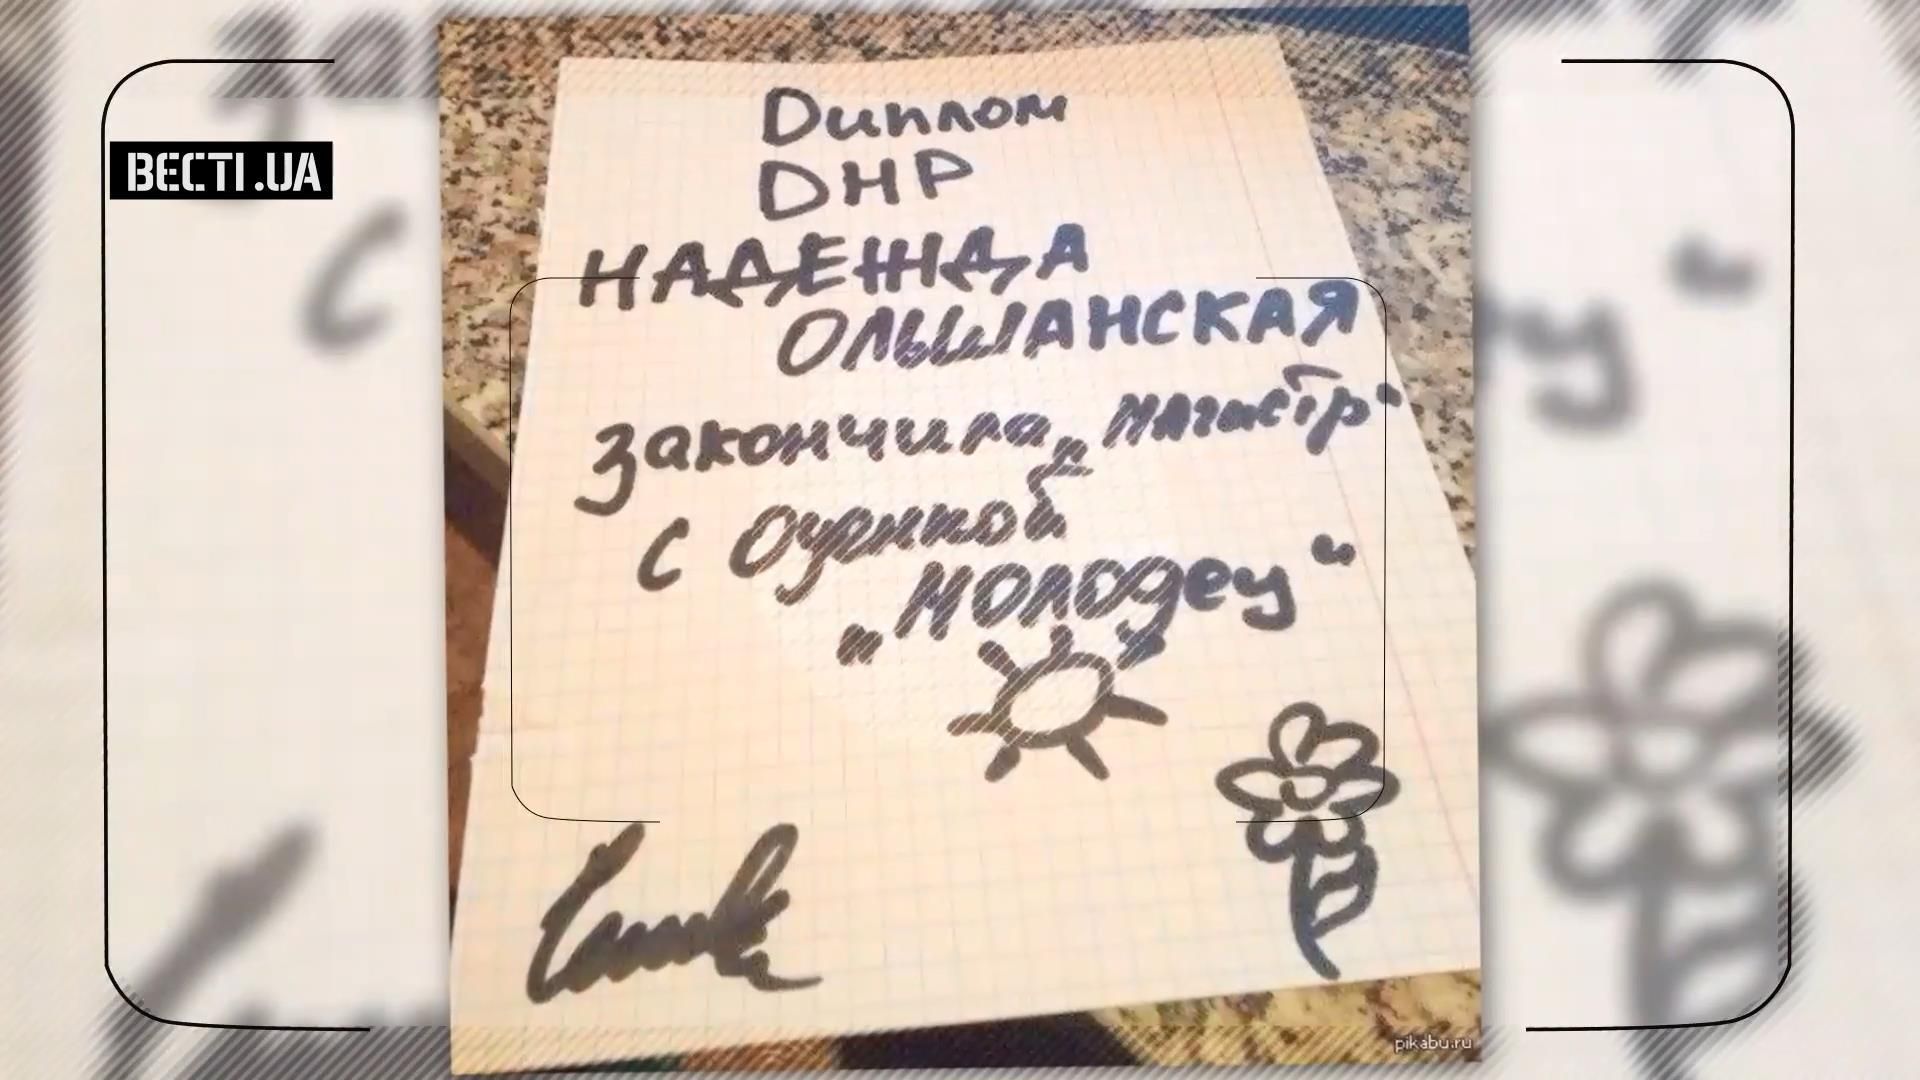 ВЕСТІ.UA
Диплом
DНР
НАДЕЖДА
ОЛЬШАНСКАЯ
Закончила „магистр“
с оценкой
„молодец“
pikabu.ru